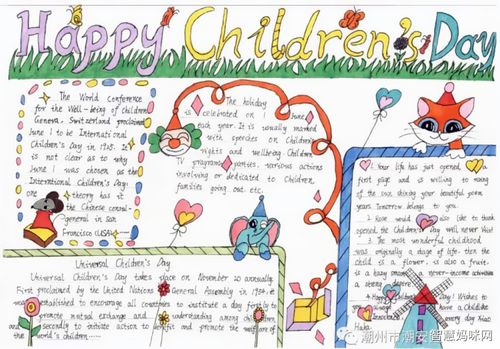 Happy Children's Day
The World Conference
for the Well-being of children
Geneva, Switzerland proclaimed
June 1 to be International
Children's Day in 1925. It
is not clear as to why
June 1 was chosen as the
International Children's Day:
one theory has it
the Chinese consul-
general in San
Francisco (USA)
The holiday
is celebrated on 1 June
each year. It is usually marked
with speeches on children
rights and wellbeing Children
TV programs parties, various actions
involving or dedicated to Children,
families going out etc.
Universal Children's Day
Universal Children's Day takes place on November 20 annually.
First proclaimed by the United Nations General Assembly in 1954, it
was established to encourage all countries to institute a day firstly to
promote mutual exchange and understanding among children,
and secondly to initiate action to benefit and promote the welfare of
the world's children
1. Your life has just opened
first page and is willing to
of the sun shining your beautiful poem
years Tomorrow belongs to you
2. Rose would also like to thank
opened the Children's day will never
3. The most wonderful childhood
was originally a stage of life. then the
child is a flower, is also a fruit,
is a hazy never-income
a strong desire
Happy Day! Wishes to
have a Childlike
every day Xiao
Haha
潮州市潮安智慧妈咪网